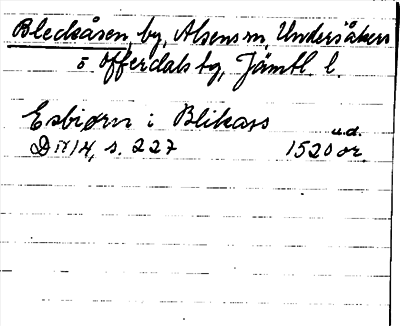 Bleckåsen, by, Alsens sn, Undersåkers
o. Offerdals tg, Jämtl. l.
Esbiørn i Blikass
u.d.
D IV 14, s. 227 1520 or.